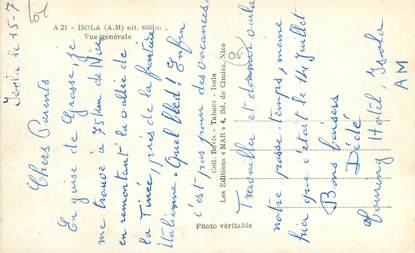 A 21 - ISOLA (A.M) alt. 860 m
Vue générale
Isola le 15-7
Chers Parents
En guise de Grasse, je
me trouve à 75 km de Nice
en remontant la vallée de
la Tinée, près de la frontière
italienne. Quel bled! Enfin
c'est pas fameux des vacances.
Coll. Bovis - Tabacs - Isola
Les Editions "MAR" 4, Bd. de Cimiez, Nice
Photo véritable
Travailler et dormir voila
notre passe-temps, même
hier que c'était le 14 juillet
Bons baisers
Dédé
Touring Hôtel, Isola
AM